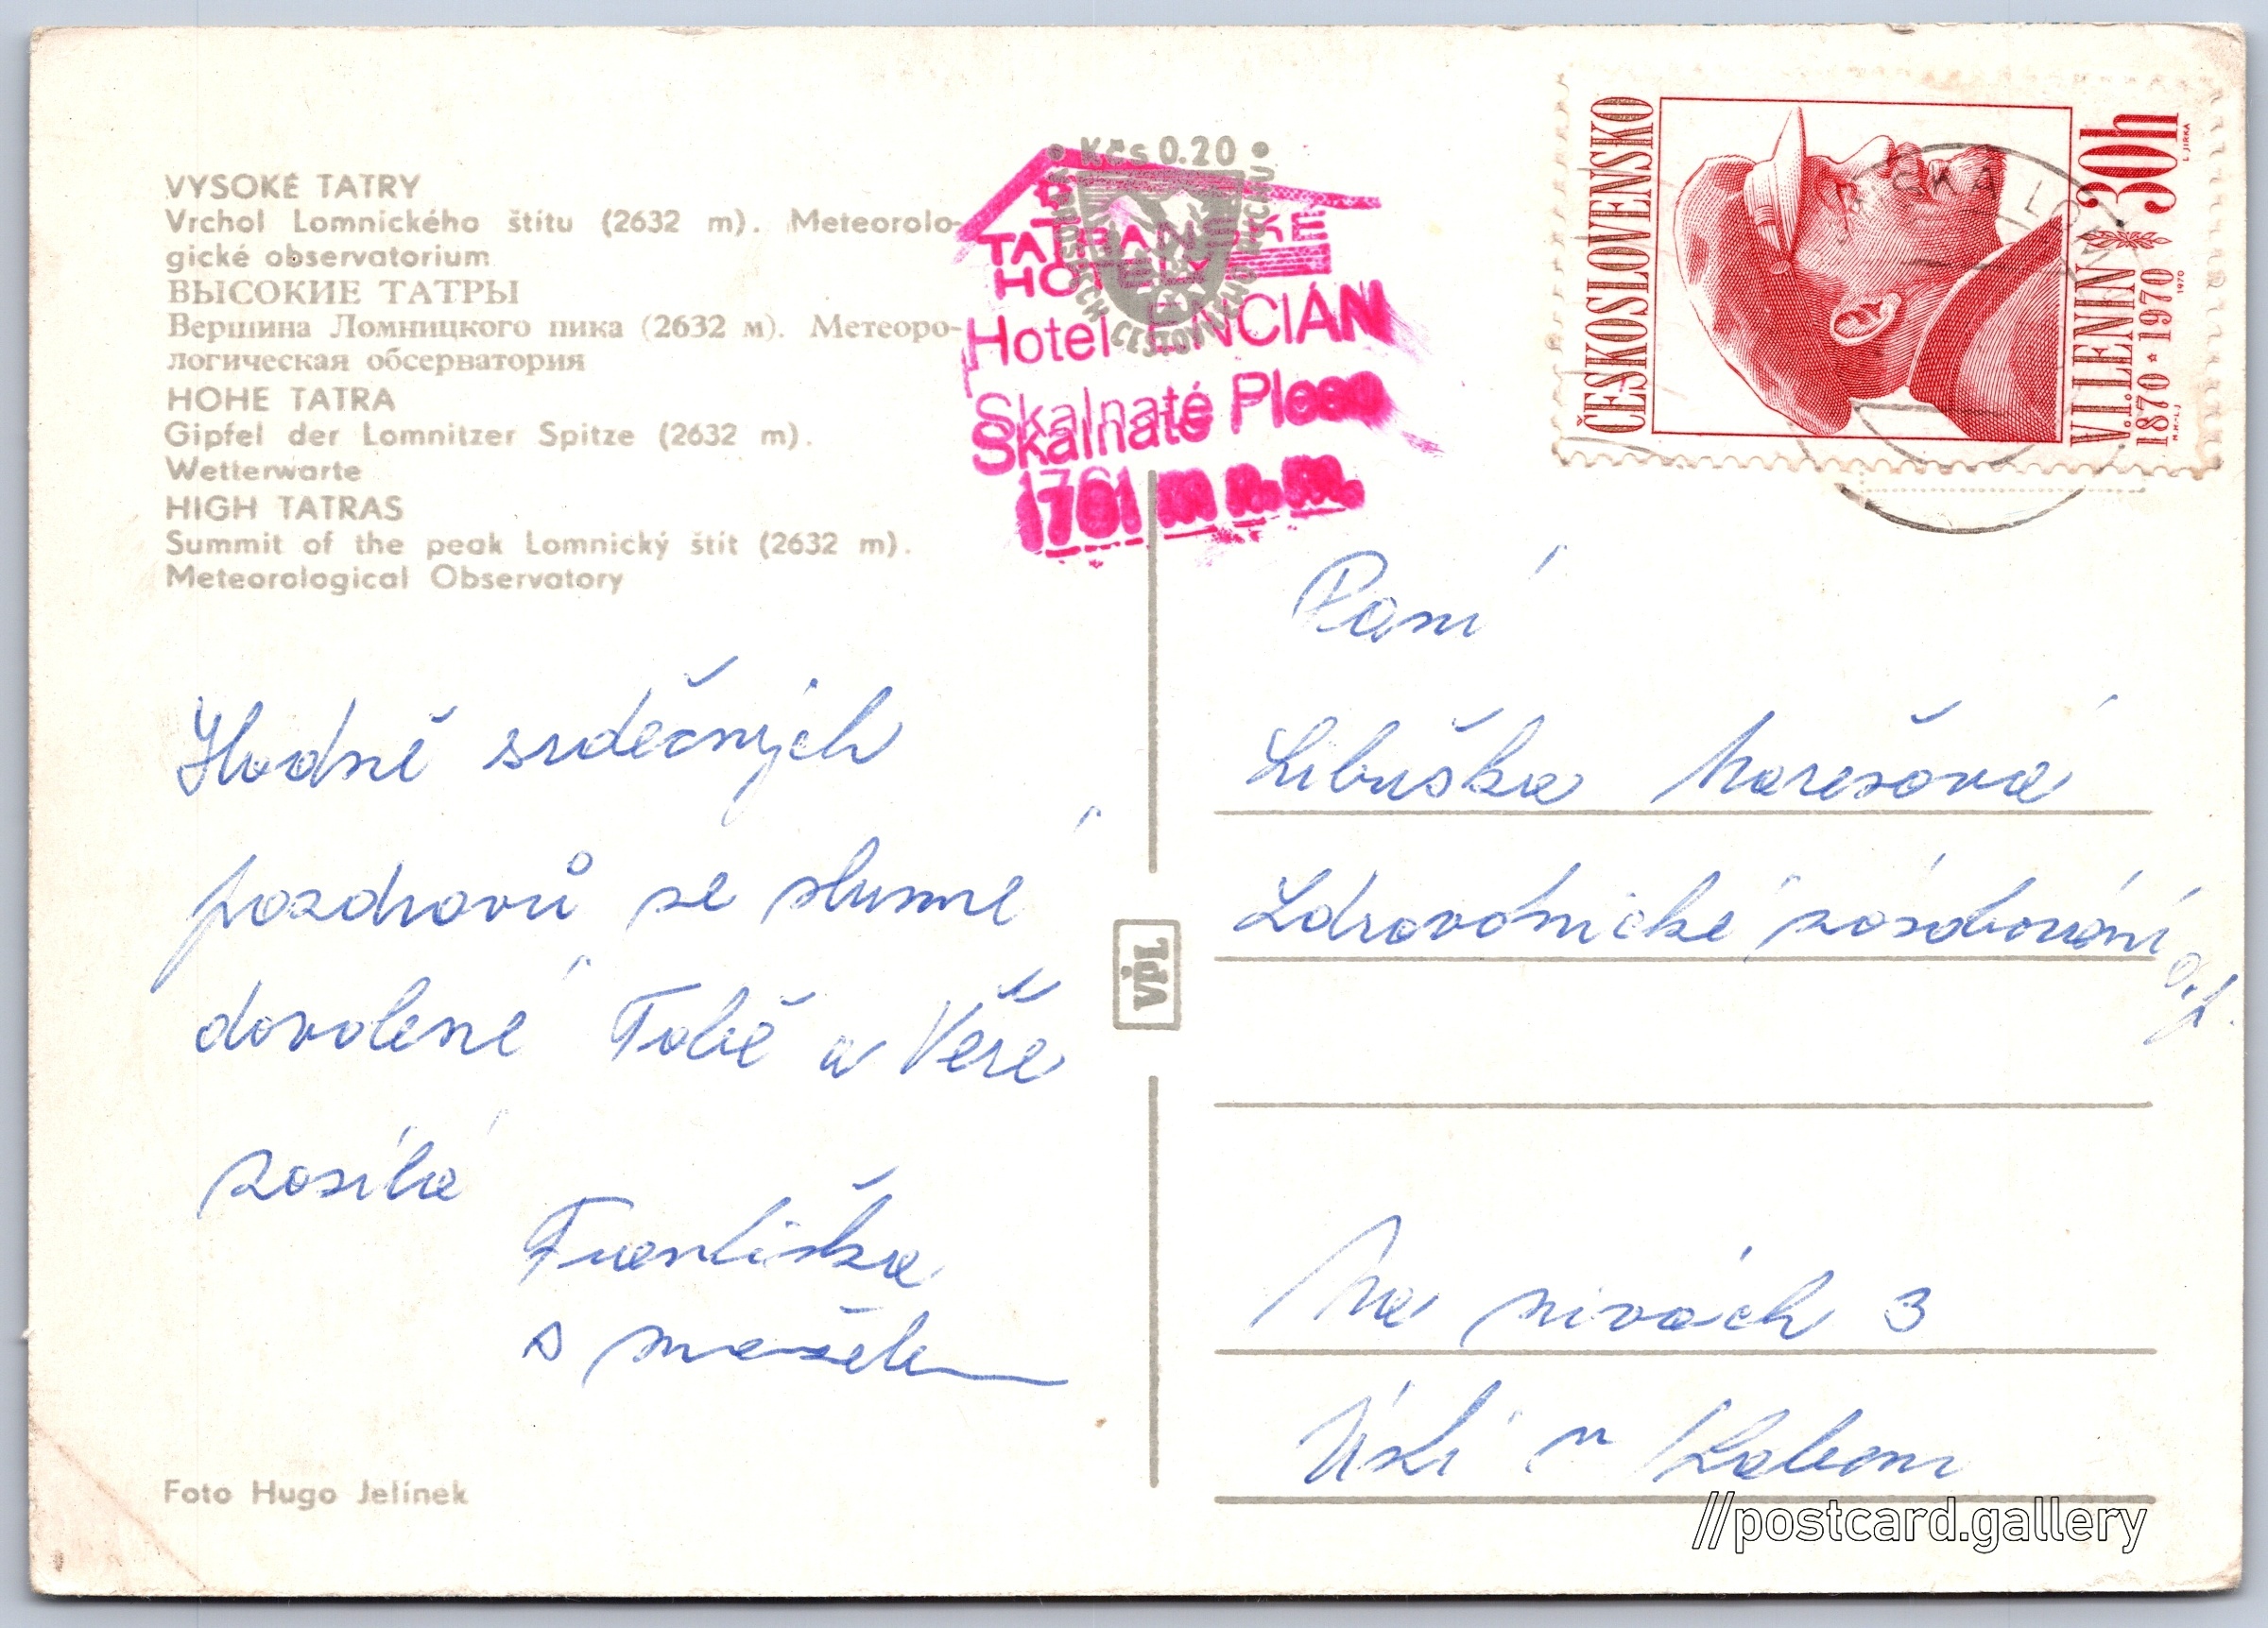 VYSOKÉ TATRY
Vrchol Lomnického štítu (2632 m). Meteorolo-
gické observatorium
ВЫСОКИЕ ТАТРЫ
Вершина Ломницкого пика (2632 м). Метеоро-
логическая обсерватория
HOHE TATRA
Gipfel der Lomnitzer Spitze (2632 m).
Wetterwarte
HIGH TATRAS
Summit of the peak Lomnický štít (2632 m).
Meteorological Observatory
Hodně srdečných
pozdravů ze slunné
dovolené Tobě a Věře
zasílá
Františka
s manželem
Foto Hugo Jelínek
• Kčs 0.20 •
TATRANSKÉ
HOTELY
Hotel ENCIÁN
Skalnaté Pleso
1761 m n. m.
VPL
ČESKOSLOVENSKO
V. I. LENIN
1870 * 1970
30h
L. JIRKA
1970
Paní
Libuška Marešová
Zdravotnické zásobování
n. p.
Na nivách 3
Ústí n Labem
//postcard.gallery